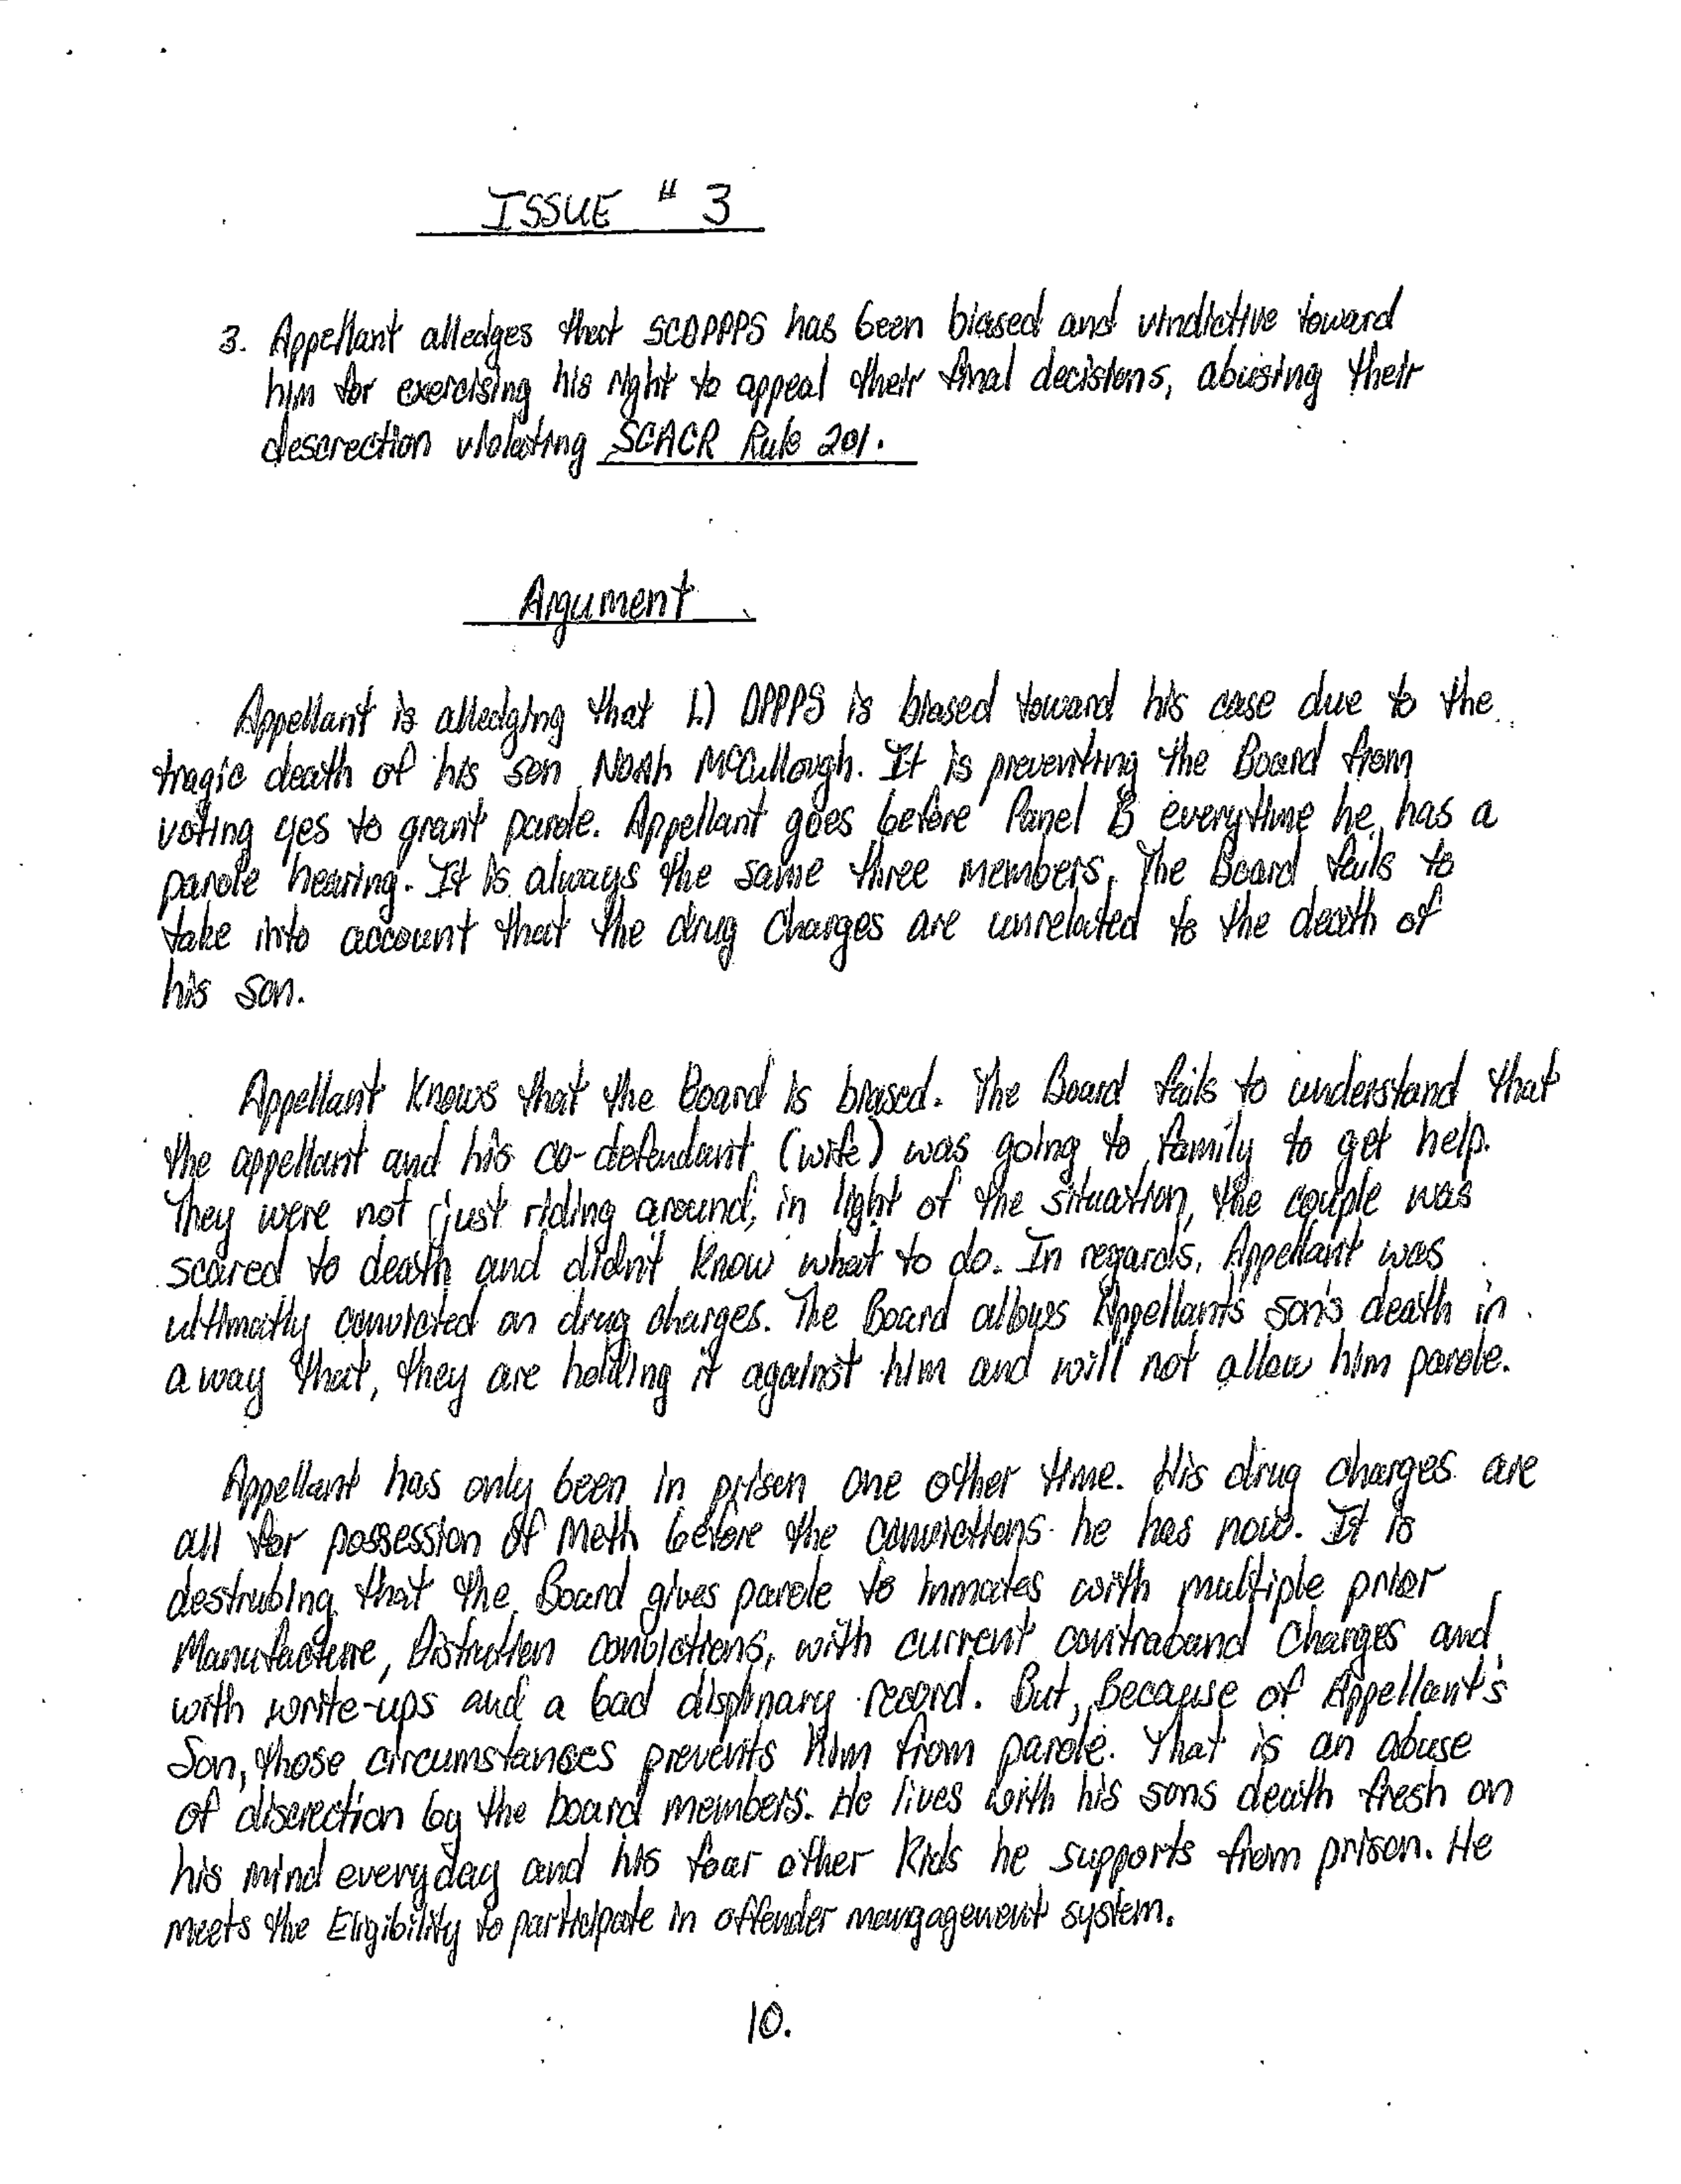 ISSUE # 3
3. Appellant alledges that SCDPPPS has been biased and vindictive toward
him for exercising his right to appeal their final decisions, abusing their
descrection violating SCACR Rule 201.
Argument
Appellant is alledging that 1.) DPPPS is biased toward his case due to the
tragic death of his son Noah McCullough. It is preventing the Board from
voting yes to grant parole. Appellant goes before Panel B everytime he has a
parole hearing. It is always the same three members. The Board fails to
take into account that the drug charges are unrelated to the death of
his son.
Appellant knows that the Board is biased. The Board fails to understand that
the appellant and his co-defendant (wife) was going to family to get help.
They were not just riding around, in light of the situation, the couple was
scared to death and didn't know what to do. In regards, Appellant was
ultimatly convicted on drug charges. The Board allows Appellant's son's death in
a way that, they are holding it against him and will not allow him parole.
Appellant has only been in prison one other time. His drug charges are
all for possession of Meth before the convictions he has now. It is
destrubing that the Board gives parole to inmates with multiple prior
Manufacture, Distrution convictions, with current contraband charges and
with write-ups and a bad displinary record. But, Because of Appellant's
Son, those circumstances prevents him from parole. That is an abuse
of discrection by the board members. He lives with his sons death fresh on
his mind everyday and his four other kids he supports from prison. He
meets the Eligibility to participate in offender mangagement system.
10.